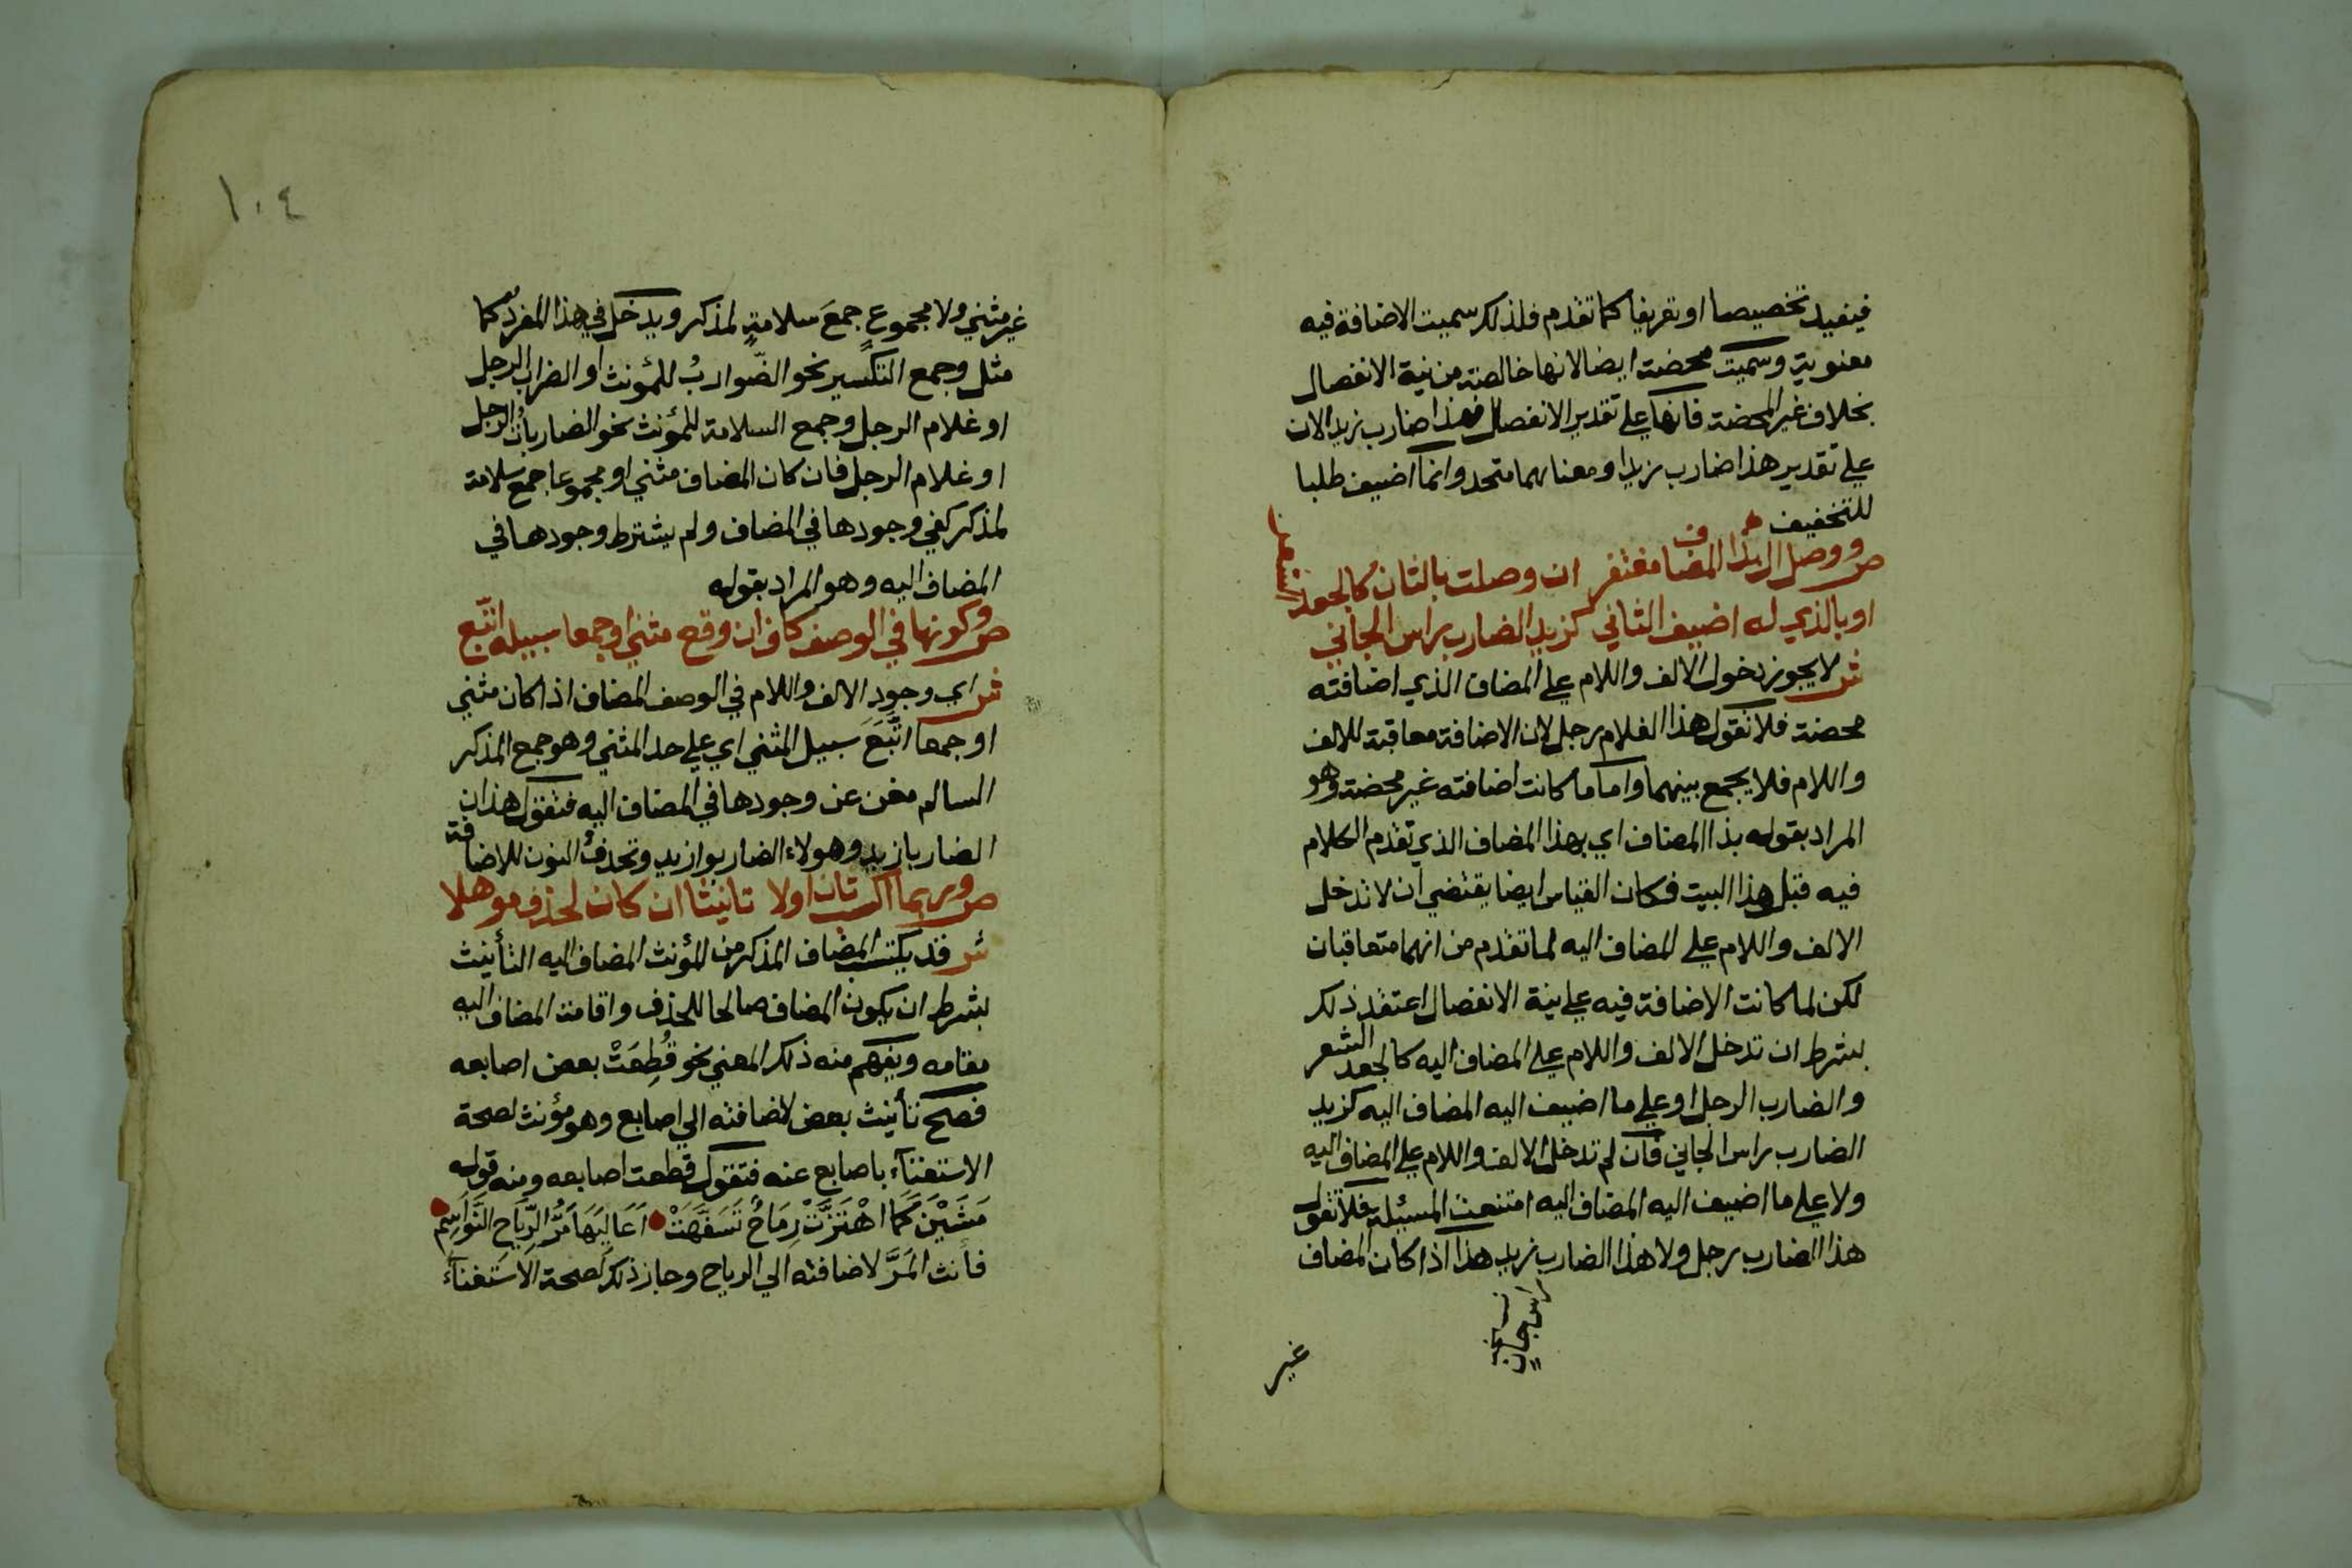 فيفيد تخصيصا او تعريفا كما تقدم فلذلك سميت الاضافة فيه
معنوية وسميت محضة ايضا لانها خالصة من نية الانفصال
بخلاف غير المحضة فانها علي تقدير الانفصال فهذا ضارب زيد الان
علي تقدير هذا ضارب زيدا ومعناهما متحد وانما اضيف طلبا
للتخفيف
ص ووصل ال بذا المضاف مغتفر ان وصلت بالثان كالجعد الشعر
او بالذي له اضيف الثاني كزيد الضارب راس الجاني
ش لا يجوز دخول الالف واللام علي المضاف الذي اضافته
محضة فلا تقول هذا الغلام رجل لان الاضافة معاقبة للالف
واللام فلا يجمع بينهما واما ما كانت اضافته غير محضة وهو
المراد بقوله بذا المضاف اي بهذا المضاف الذي تقدم الكلام
فيه قبل هذا البيت فكان القياس ايضا يقتضي ان لا تدخل
الالف واللام علي المضاف اليه لما تقدم من انهما متعاقبان
لكن لما كانت الاضافة فيه علي نية الانفصال اغتفر ذلك
بشرط ان تدخل الالف واللام علي المضاف اليه كالجعد الشعر
والضارب الرجل او علي ما اضيف اليه المضاف اليه كزيد
الضارب راس الجاني فان لم تدخل الالف واللام علي المضاف اليه
ولا علي ما اضيف اليه المضاف اليه امتنعت المسئلة فلا تقول
هذا الضارب رجل ولا هذا الضارب زيد هذا اذا كان المضاف
راس جانٍ
غير
١٠٤
غير مثني ولا مجموع جمعَ سلامةٍ لمذكر ويدخل في هذا المفردُ كما
مثل وجمع التكسير نحو الضّواربُ للمؤنث او الضراب الرجل
او غلام الرجل وجمع السلامة للمؤنث نحو الضارباتُ الرجل
او غلام الرجل فان كان المضاف مثني او مجموعا جمع سلامة
لمذكر كفي وجودها في المضاف ولم يشترط وجودها في
المضاف اليه وهو المراد بقوله
ص وكونها في الوصف كاف ان وقع مثني او جمعا سبيله اتّبع
ش اي وجود الالف واللام في الوصف المضاف اذا كان مثني
او جمعا اتَّبَعَ سبيل المثني اي علي حد المثني وهو جمع المذكر
السالم مغن عن وجودها في المضاف اليه فتقول هذان
الضاربا زيد وهولاء الضاربوا زيد وتحذفُ النون للاضافة
ص وربما اكسب ثان اولا تانيثا ان كان لحذف موهلا
ش قد يكتسب المضاف المذكر من المؤنث المضاف اليه التأنيث
بشرط ان يكون المضاف صالحا للحذف واقامة المضاف اليه
مقامه ويفهم منه ذلك المعني نحو قُطِعَتْ بعض اصابعه
فصح تأنيث بعض لاضافته الي اصابع وهو مؤنث لصحة
الاستغنآء باصابع عنه فتقول قطعت اصابعه ومنه قوله
مَشَيْنَ كَمَا اهْتَزَّتْ رِمَاحٌ تَسَفَّهَتْ اَعَالِيَهَا مَرُّ الرِّيَاحِ النَّوَاسِمِ
فأنث المَرَّ لاضافته الي الرياح وجاز ذلك لصحة الاستغنآء